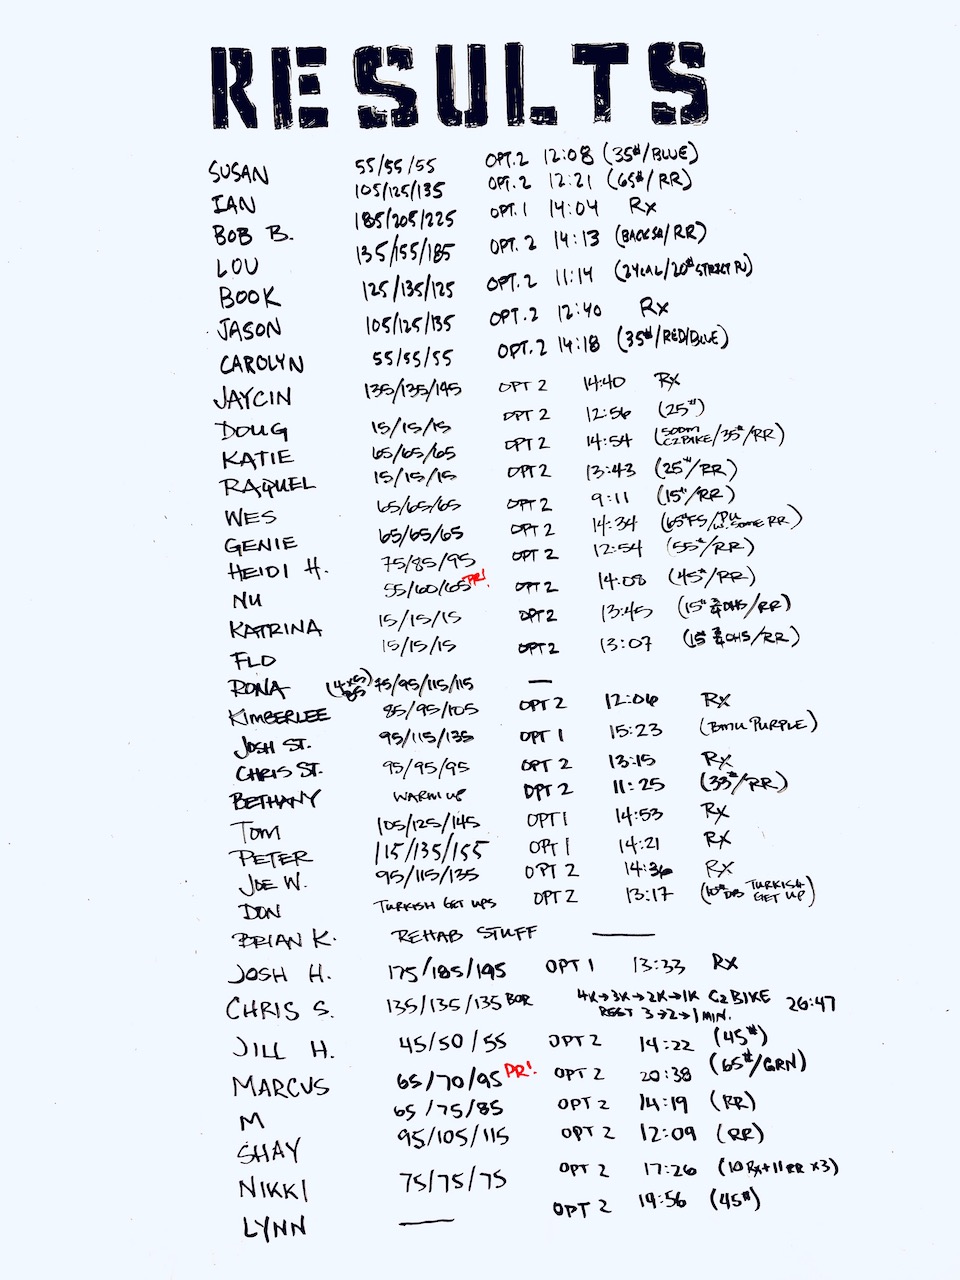 RESULTS
SUSAN 55/55/55 OPT.2 12:08 (35#/BLUE)
IAN 105/125/135 OPT.2 12:21 (65#/RR)
BOB B. 185/205/225 OPT.1 14:04 Rx
LOU 135/155/185 OPT.2 14:13 (BACKSQ/RR)
BOOK 125/135/125 OPT.2 11:14 (24CAL/20# STRICT PU)
JASON 105/125/135 OPT.2 12:40 Rx
CAROLYN 55/55/55 OPT.2 14:18 (35#/RED/BLUE)
JAYCIN 135/135/145 OPT 2 14:40 Rx
DOUG 15/15/15 OPT 2 12:56 (25#)
KATIE 65/65/65 OPT 2 14:54 (500M C2BIKE/35#/RR)
RAQUEL 15/15/15 OPT 2 13:43 (25#/RR)
WES 65/65/65 OPT 2 9:11 (15#/RR)
GENIE 65/65/65 OPT 2 14:34 (65#FS/PU W.SOME RR)
HEIDI H. 75/85/95 OPT 2 12:54 (55#/RR)
NU 55/60/65 PR! OPT 2 14:08 (45#/RR)
KATRINA 15/15/15 OPT 2 13:45 (15# OHS/RR)
FLO 15/15/15 OPT 2 13:07 (15# OHS/RR)
RONA (4x5) 75/95/115/115 —
KIMBERLEE 85/95/105 OPT 2 12:06 Rx
JOSH ST. 95/115/135 OPT 1 15:23 (BMU PURPLE)
CHRIS ST. 95/95/95 OPT 2 13:15 Rx
BETHANY WARM UP OPT 2 11:25 (33#/RR)
TOM 105/125/145 OPT 1 14:53 Rx
PETER 115/135/155 OPT 1 14:21 Rx
JOE W. 95/115/135 OPT 2 14:36 Rx
DON TURKISH GET UPS OPT 2 13:17 (10# DB TURKISH GET UP)
BRIAN K. REHAB STUFF —
JOSH H. 175/185/195 OPT 1 13:33 Rx
CHRIS S. 135/135/135 BOR 4K→3K→2K→1K C2BIKE 26:47
REST 3→2→1 MIN.
JILL H. 45/50/55 OPT 2 14:22 (45#)
MARCUS 65/70/95 PR! OPT 2 20:38 (65#/GRN)
M 65/75/85 OPT 2 14:19 (RR)
SHAY 95/105/115 OPT 2 12:09 (RR)
NIKKI 75/75/75 OPT 2 17:26 (10 Rx+11 RR x3)
LYNN — OPT 2 14:56 (45#)